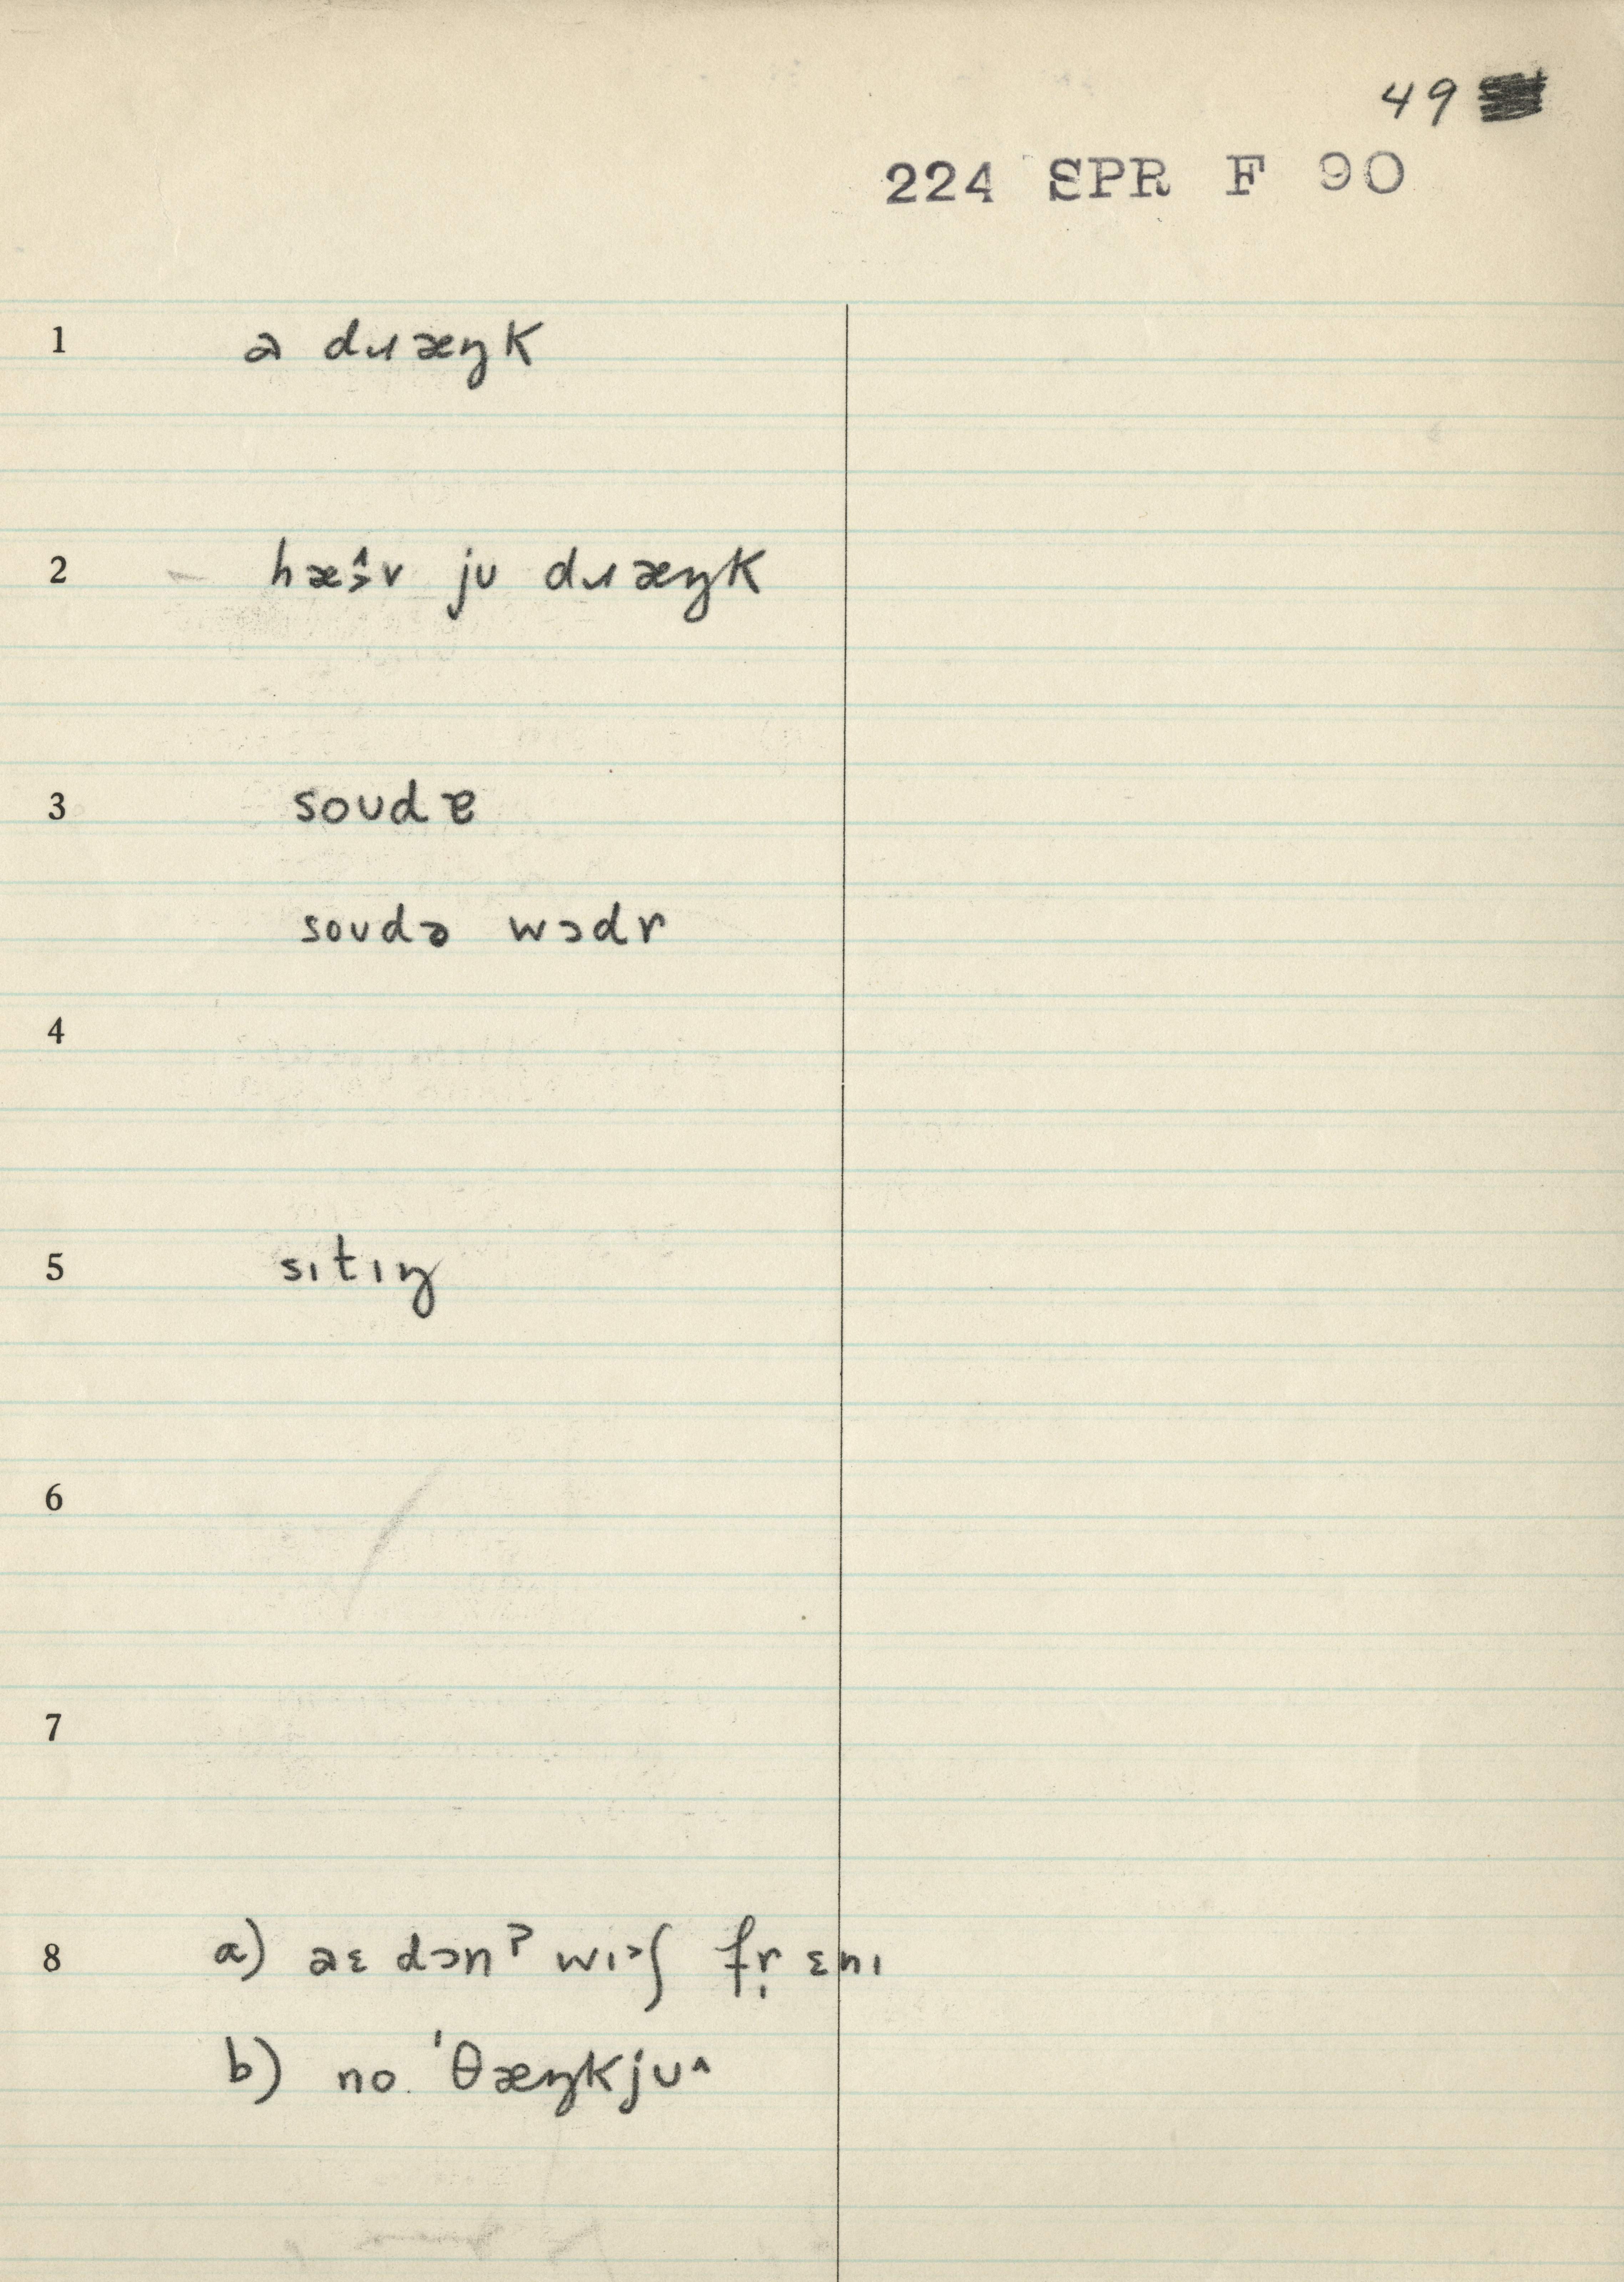 49
224 SPR F 90
1 a dɹæŋk
2 hæ̭v jʊ dɹæŋk
3 soʊdɐ
soʊdə wɔdr
4
5 sɪtɪŋ
6
7
8 a) aɛ dɔnˀ wɪ˃ʃ fr̩ ɛnɪ
b) no. ˈθæŋkjʊ^